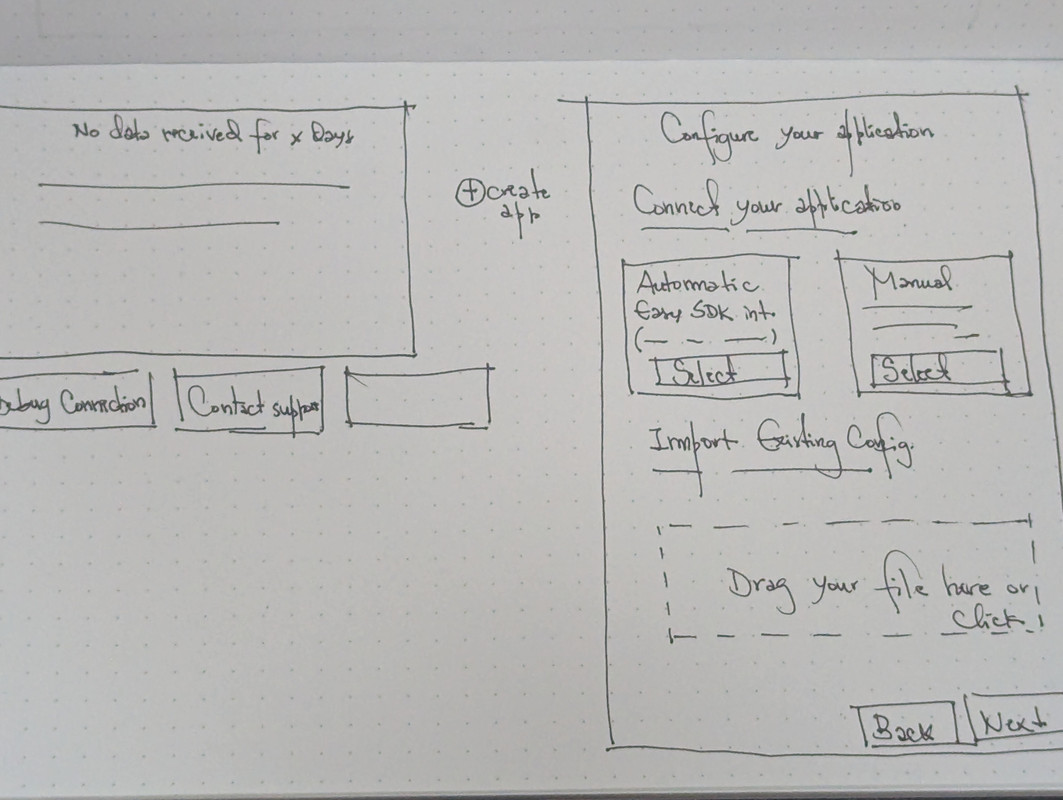 No data received for x Days
Debug Connection
Contact support
+ create
app
Configure your application
Connect your application
Automatic
Easy SDK int.
(— - —)
Select
Manual
Select
Import Existing Config.
Drag your file here or
Click.
Back
Next